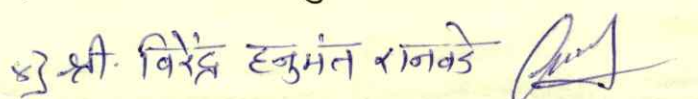 ४) श्री. विरेंद्र हनुमंत रानवडे